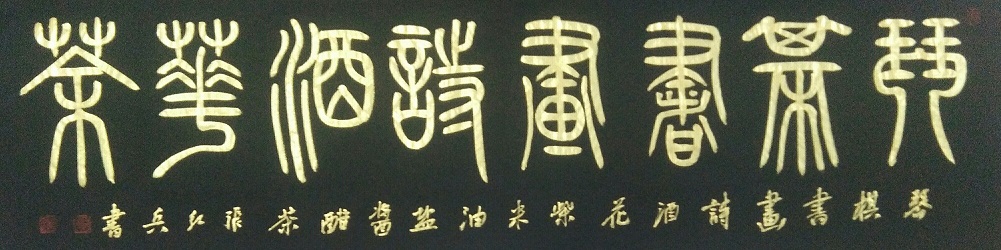 琴棊書畫詩酒華茶
琴棋書畫詩酒花柴米油盐醬醋茶張红兵書